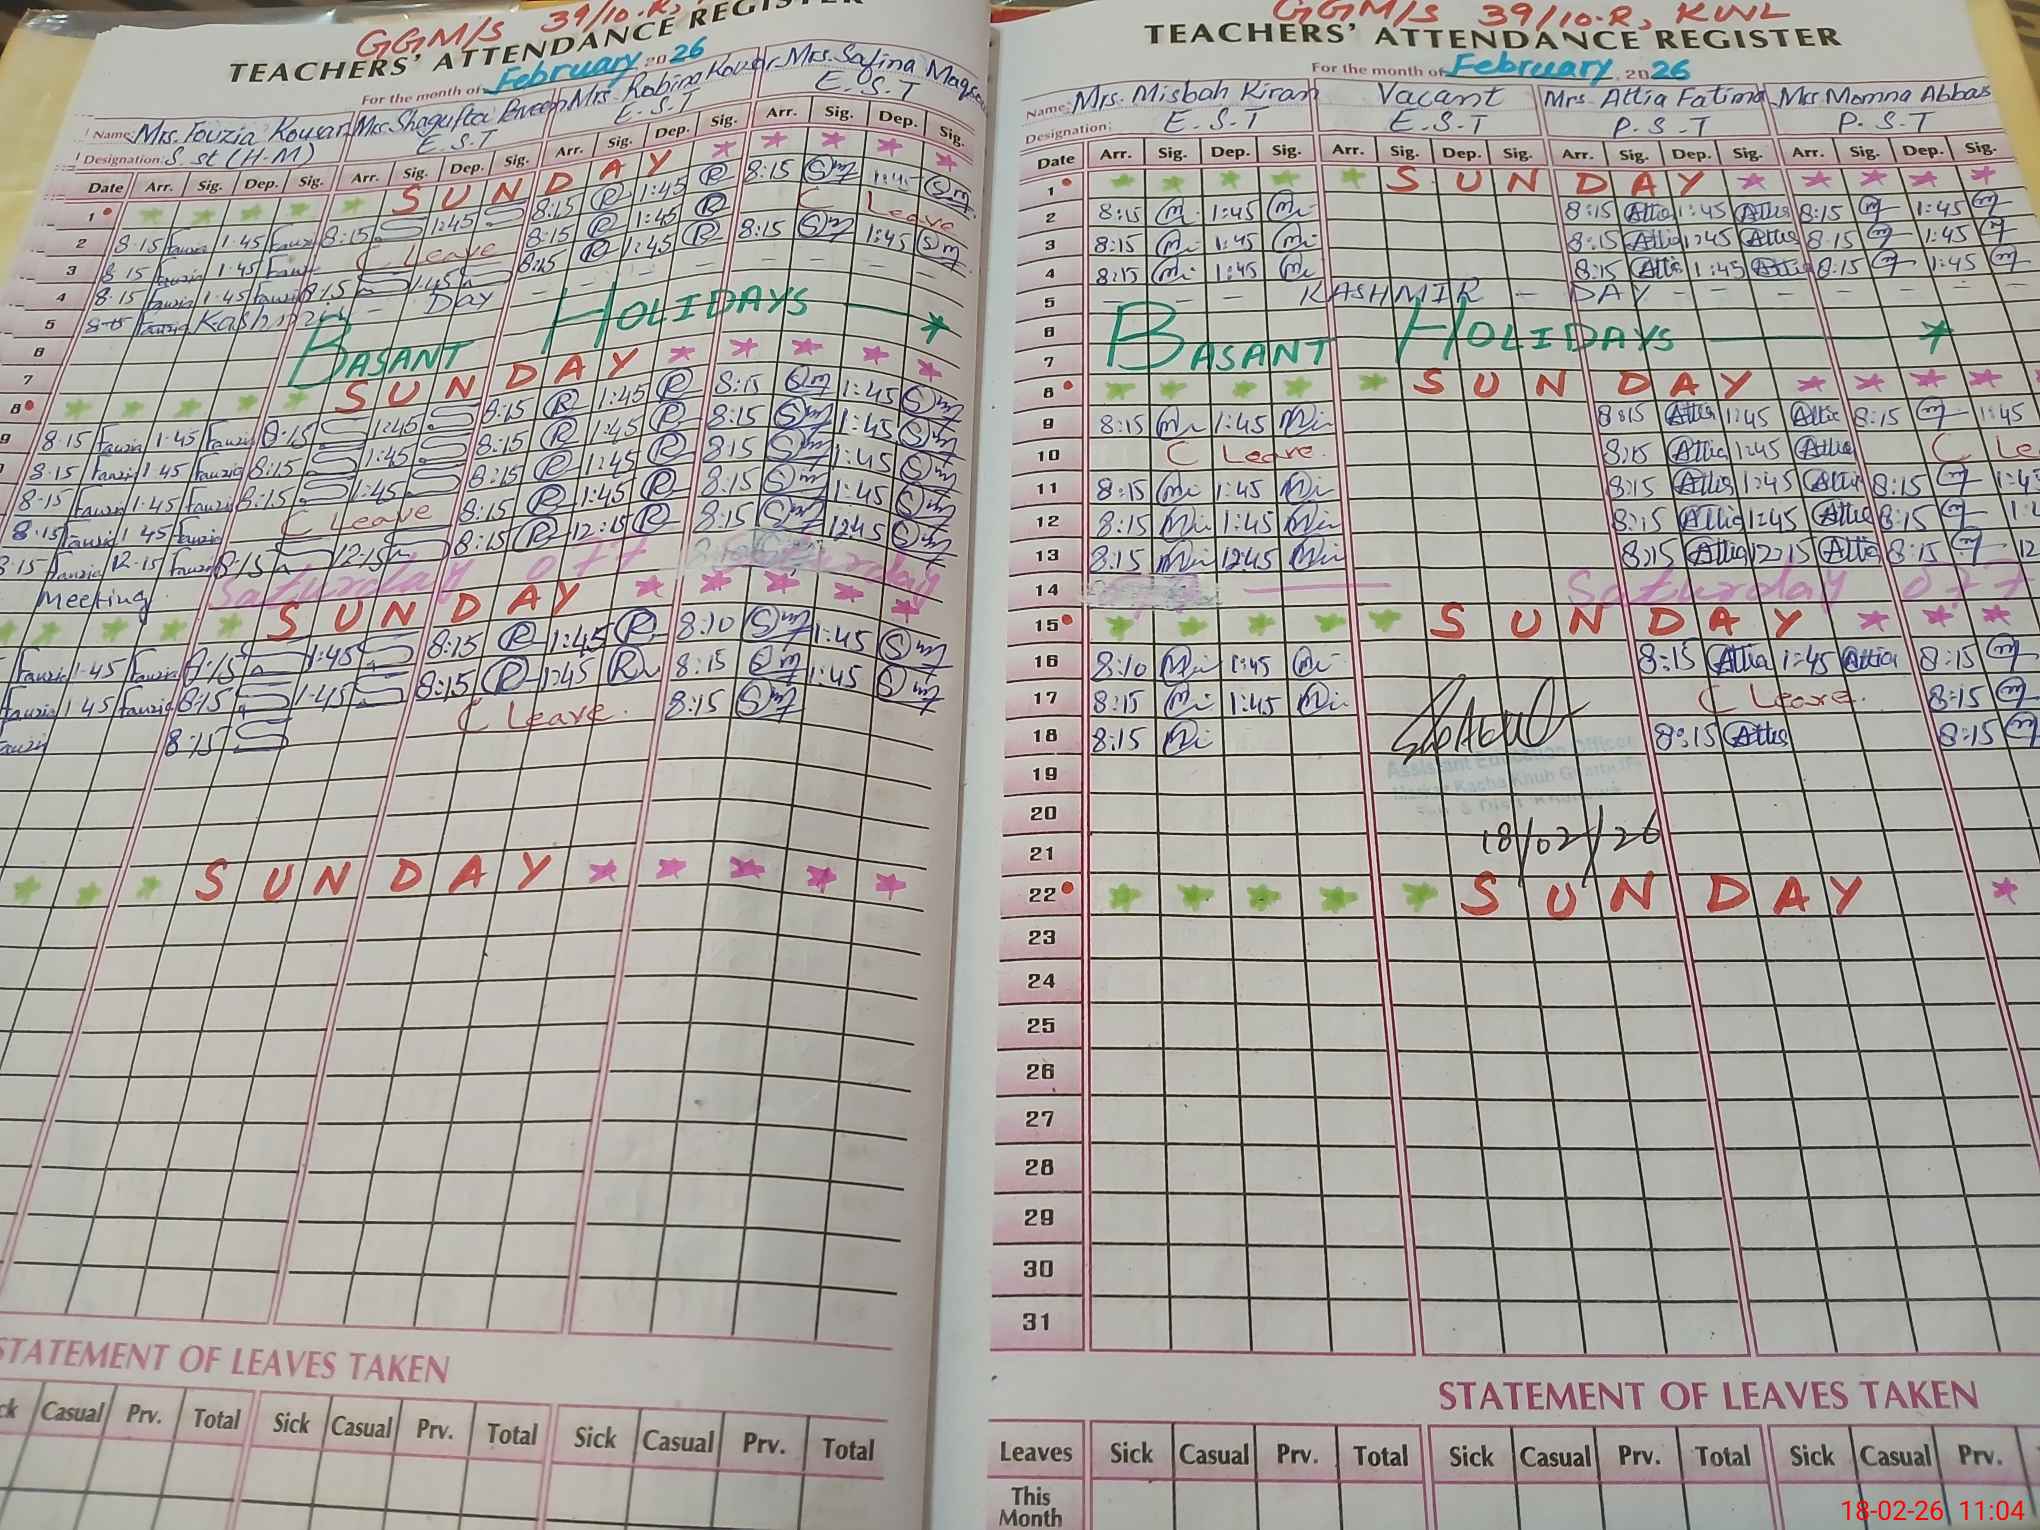 GGM/S 39/10.R,
TEACHERS' ATTENDANCE REGISTER
For the month of February 2026
Name: Mrs. Fouzia Kousar Mrs. Shagufta Perveen Mrs. Robina Kousar Mrs. Safina Maqs
Designation: S. st (H-M) E.S.T E.S.T E.S.T
Date Arr. Sig. Dep. Sig. Arr. Sig. Dep. Sig. Arr. Sig. Dep. Sig. Arr. Sig. Dep. Sig.
1 SUNDAY
2 8:15 Fauzia 1:45 Fauzia 8:15 1:45 8:15 R 1:45 R 8:15 Sm 1:45 Sm
3 8:15 Fauzia 1:45 Fauzia C Leave 8:15 R 1:45 R C Leave
4 8:15 Fauzia 1:45 Fauzia 8:15 1:45 8:15 R 1:45 R 8:15 Sm 1:45 Sm
5 8:15 Fauzia Kashmir - Day
6 BASANT HOLIDAYS
7
8 SUNDAY
9 8:15 Fauzia 1:45 Fauzia 8:15 1:45 8:15 R 1:45 R 8:15 Sm 1:45 Sm
8:15 Fauzia 1:45 Fauzia 8:15 1:45 8:15 R 1:45 R 8:15 Sm 1:45 Sm
8:15 Fauzia 1:45 Fauzia 8:15 1:45 8:15 R 1:45 R 8:15 Sm 1:45 Sm
8:15 Fauzia 1:45 Fauzia C Leave 8:15 R 1:45 R 8:15 Sm 1:45 Sm
8:15 Fauzia 12:15 Fauzia 8:15 12:15 8:15 R 12:15 R 8:15 Sm 12:45 Sm
Meeting Saturday off Saturday
SUNDAY
Fauzia 1:45 Fauzia 8:15 1:45 8:15 R 1:45 R 8:10 Sm 1:45 Sm
Fauzia 1:45 Fauzia 8:15 1:45 8:15 R 1:45 R 8:15 Sm 1:45 Sm
Fauzia 8:15 C Leave. 8:15 Sm
SUNDAY
STATEMENT OF LEAVES TAKEN
ck Casual Prv. Total Sick Casual Prv. Total Sick Casual Prv. Total
GGM/S 39/10.R, KWL
TEACHERS' ATTENDANCE REGISTER
For the month of February, 2026
Name: Mrs. Misbah Kiran Vacant Mrs. Attia Fatima Mrs Momna Abbas
Designation: E.S.T E.S.T P.S.T P.S.T
Date Arr. Sig. Dep. Sig. Arr. Sig. Dep. Sig. Arr. Sig. Dep. Sig. Arr. Sig. Dep. Sig.
1 SUNDAY
2 8:15 Mi 1:45 Mi 8:15 Attia 1:45 Attia 8:15 m 1:45 m
3 8:15 Mi 1:45 Mi 8:15 Attia 1:45 Attia 8:15 m 1:45 m
4 8:15 Mi 1:45 Mi 8:15 Attia 1:45 Attia 8:15 m 1:45 m
5 KASHMIR - DAY
6 BASANT HOLIDAYS
7
8 SUNDAY
9 8:15 Mi 1:45 Mi 8:15 Attia 1:45 Attia 8:15 m 1:45
10 C Leave. 8:15 Attia 1:45 Attia C Le
11 8:15 Mi 1:45 Mi 8:15 Attia 1:45 Attia 8:15 m 1:4
12 8:15 Mi 1:45 Mi 8:15 Attia 1:45 Attia 8:15 m 1:
13 8:15 Mi 12:45 Mi 8:15 Attia 12:15 Attia 8:15 m 12
14 Saturday off
15 SUNDAY
16 8:10 Mi 1:45 Mi 8:15 Attia 1:45 Attia 8:15 m
17 8:15 Mi 1:45 Mi C Leave. 8:15 m
18 8:15 Mi 8:15 Attia 8:15 m
Assistant Education Officer
19
20
18/02/26
21
22 SUNDAY
23
24
25
26
27
28
29
30
31
STATEMENT OF LEAVES TAKEN
Leaves Sick Casual Prv. Total Sick Casual Prv. Total Sick Casual Prv.
This Month
18-02-26 11:04